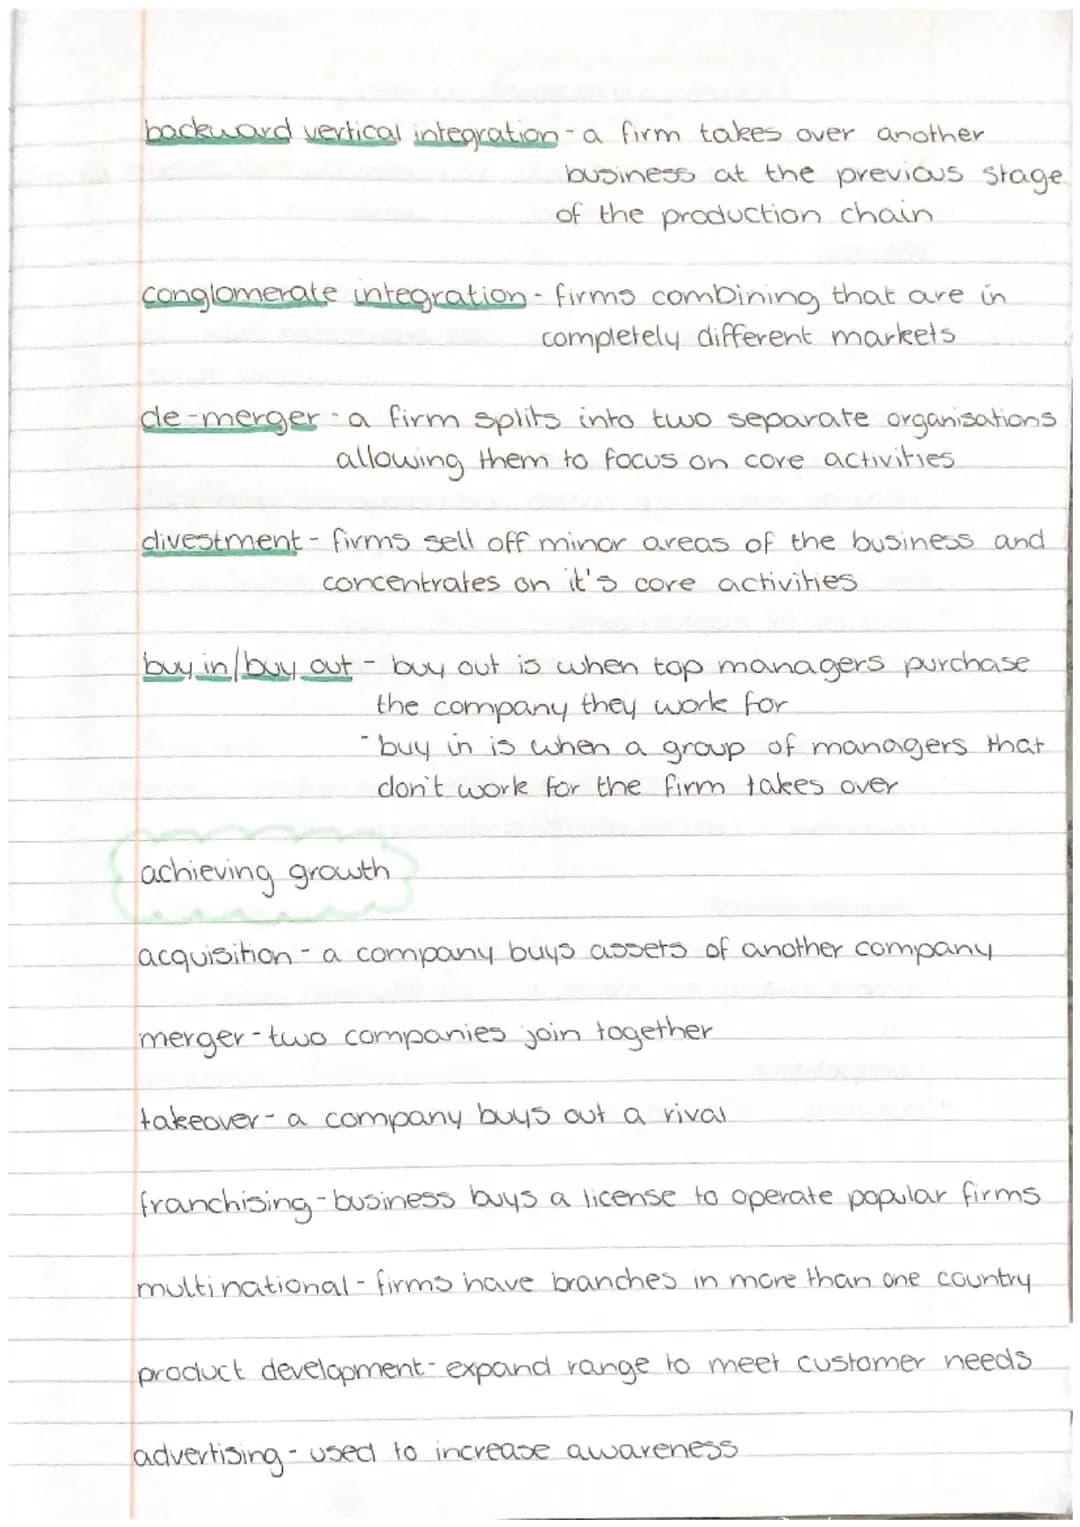 backward vertical integration - a firm takes over another
business at the previous stage
of the production chain
conglomerate integration - firms combining that are in
completely different markets
de-merger - a firm splits into two separate organisations
allowing them to focus on core activities
divestment - firms sell off minor areas of the business and
concentrates on it's core activities
buy in/buy out - buy out is when top managers purchase
the company they work for
- buy in is when a group of managers that
don't work for the firm takes over
achieving growth
acquisition - a company buys assets of another company
merger - two companies join together
takeover - a company buys out a rival
franchising - business buys a license to operate popular firms
multinational - firms have branches in more than one country
product development - expand range to meet customer needs
advertising - used to increase awareness